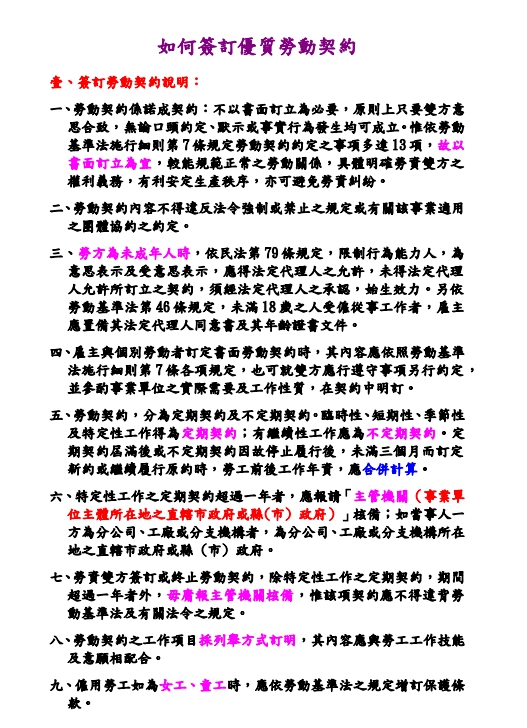 如何簽訂優質勞動契約
壹、簽訂勞動契約說明：
一、勞動契約係諾成契約：不以書面訂立為必要，原則上只要雙方意
思合致，無論口頭約定、默示或事實行為發生均可成立。惟依勞動
基準法施行細則第7條規定勞動契約約定之事項多達13項，故以
書面訂立為宜，較能規範正常之勞動關係，具體明確勞資雙方之
權利義務，有利安定生產秩序，亦可避免勞資糾紛。
二、勞動契約內容不得違反法令強制或禁止之規定或有關該事業適用
之團體協約之約定。
三、勞方為未成年人時，依民法第79條規定，限制行為能力人，為
意思表示及受意思表示，應得法定代理人之允許，未得法定代理
人允許所訂立之契約，須經法定代理人之承認，始生效力。另依
勞動基準法第46條規定，未滿18歲之人受僱從事工作者，雇主
應置備其法定代理人同意書及其年齡證書文件。
四、雇主與個別勞動者訂定書面勞動契約時，其內容應依照勞動基準
法施行細則第7條各項規定，也可就雙方應行遵守事項另行約定，
並參酌事業單位之實際需要及工作性質，在契約中明訂。
五、勞動契約，分為定期契約及不定期契約。臨時性、短期性、季節性
及特定性工作得為定期契約；有繼續性工作應為不定期契約。定
期契約屆滿後或不定期契約因故停止履行後，未滿三個月而訂定
新約或繼續履行原約時，勞工前後工作年資，應合併計算。
六、特定性工作之定期契約超過一年者，應報請「主管機關（事業單
位主體所在地之直轄市政府或縣(市）政府）」核備；如當事人一
方為分公司、工廠或分支機構者，為分公司、工廠或分支機構所在
地之直轄市政府或縣（市）政府。
七、勞資雙方簽訂或終止勞動契約，除特定性工作之定期契約，期間
超過一年者外，毋庸報主管機關核備，惟該項契約應不得違背勞
動基準法及有關法令之規定。
八、勞動契約之工作項目採列舉方式訂明，其內容應與勞工工作技能
及意願相配合。
九、僱用勞工如為女工、童工時，應依勞動基準法之規定增訂保護條
款。